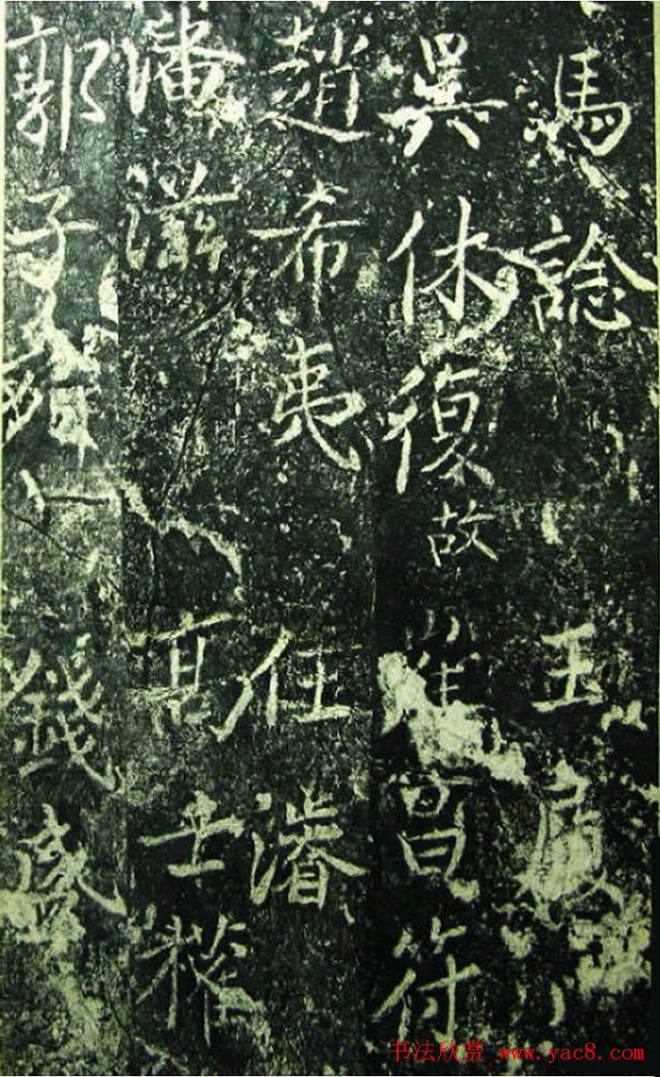 馮諗 王
吳休復 故 崔昌符
趙希夷 任濬
潘滋 高士權
郭子 錢盛
书法欣赏 www.yac8.com